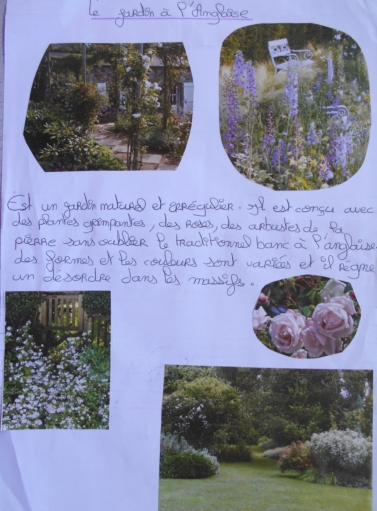 Le jardin à l'Anglaise
Est un jardin naturel et irrégulier. Il est conçu avec
des plantes grimpantes, des roses, des arbustes de la
pierre sans oublier le traditionnel banc à l'anglaise
des formes et les couleurs sont variées et il règne
un désordre dans les massifs.